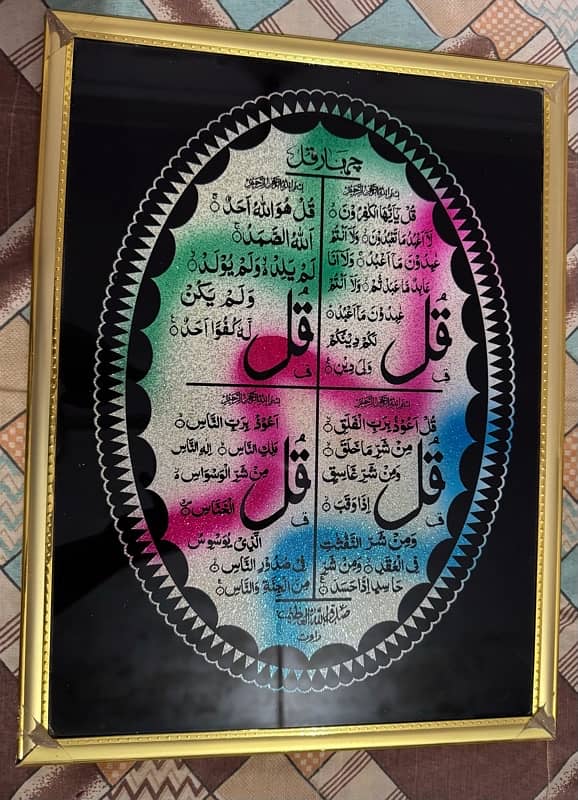 چہار قل
بسم الله الرحمن الرحيم
قُلْ يٰٓاَيُّهَا الْكٰفِرُوْنَ
لَآ اَعْبُدُ مَا تَعْبُدُوْنَ وَلَآ اَنْتُمْ
عٰبِدُوْنَ مَآ اَعْبُدُ وَلَآ اَنَا
عَابِدٌ مَّا عَبَدْتُّمْ وَلَآ اَنْتُمْ
عٰبِدُوْنَ مَآ اَعْبُدُ
لَكُمْ دِيْنُكُمْ
وَلِىَ دِيْنِ
قُل
ف
بسم الله الرحمن الرحيم
قُلْ هُوَ اللّٰهُ اَحَدٌ
اَللّٰهُ الصَّمَدُ
لَمْ يَلِدْ وَلَمْ يُوْلَدْ
وَلَمْ يَكُنْ
لَّهٗ كُفُوًا اَحَدٌ
قُل
ف
بسم الله الرحمن الرحيم
قُلْ اَعُوْذُ بِرَبِّ الْفَلَقِ
مِنْ شَرِّ مَا خَلَقَ
وَمِنْ شَرِّ غَاسِقٍ
اِذَا وَقَبَ
قُل
ف
وَمِنْ شَرِّ النَّفّٰثٰتِ
فِى الْعُقَدِ وَمِنْ شَرِّ
حَاسِدٍ اِذَا حَسَدَ
بسم الله الرحمن الرحيم
اَعُوْذُ بِرَبِّ النَّاسِ
مَلِكِ النَّاسِ اِلٰهِ النَّاسِ
مِنْ شَرِّ الْوَسْوَاسِ
الْخَنَّاسِ
قُل
ف
الَّذِىْ يُوَسْوِسُ
فِىْ صُدُوْرِ النَّاسِ
مِنَ الْجِنَّةِ وَالنَّاسِ
صدق الله العظيم